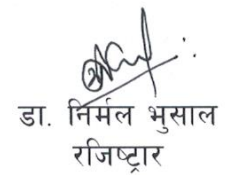 डा. निर्मल भुसाल
रजिष्ट्रार